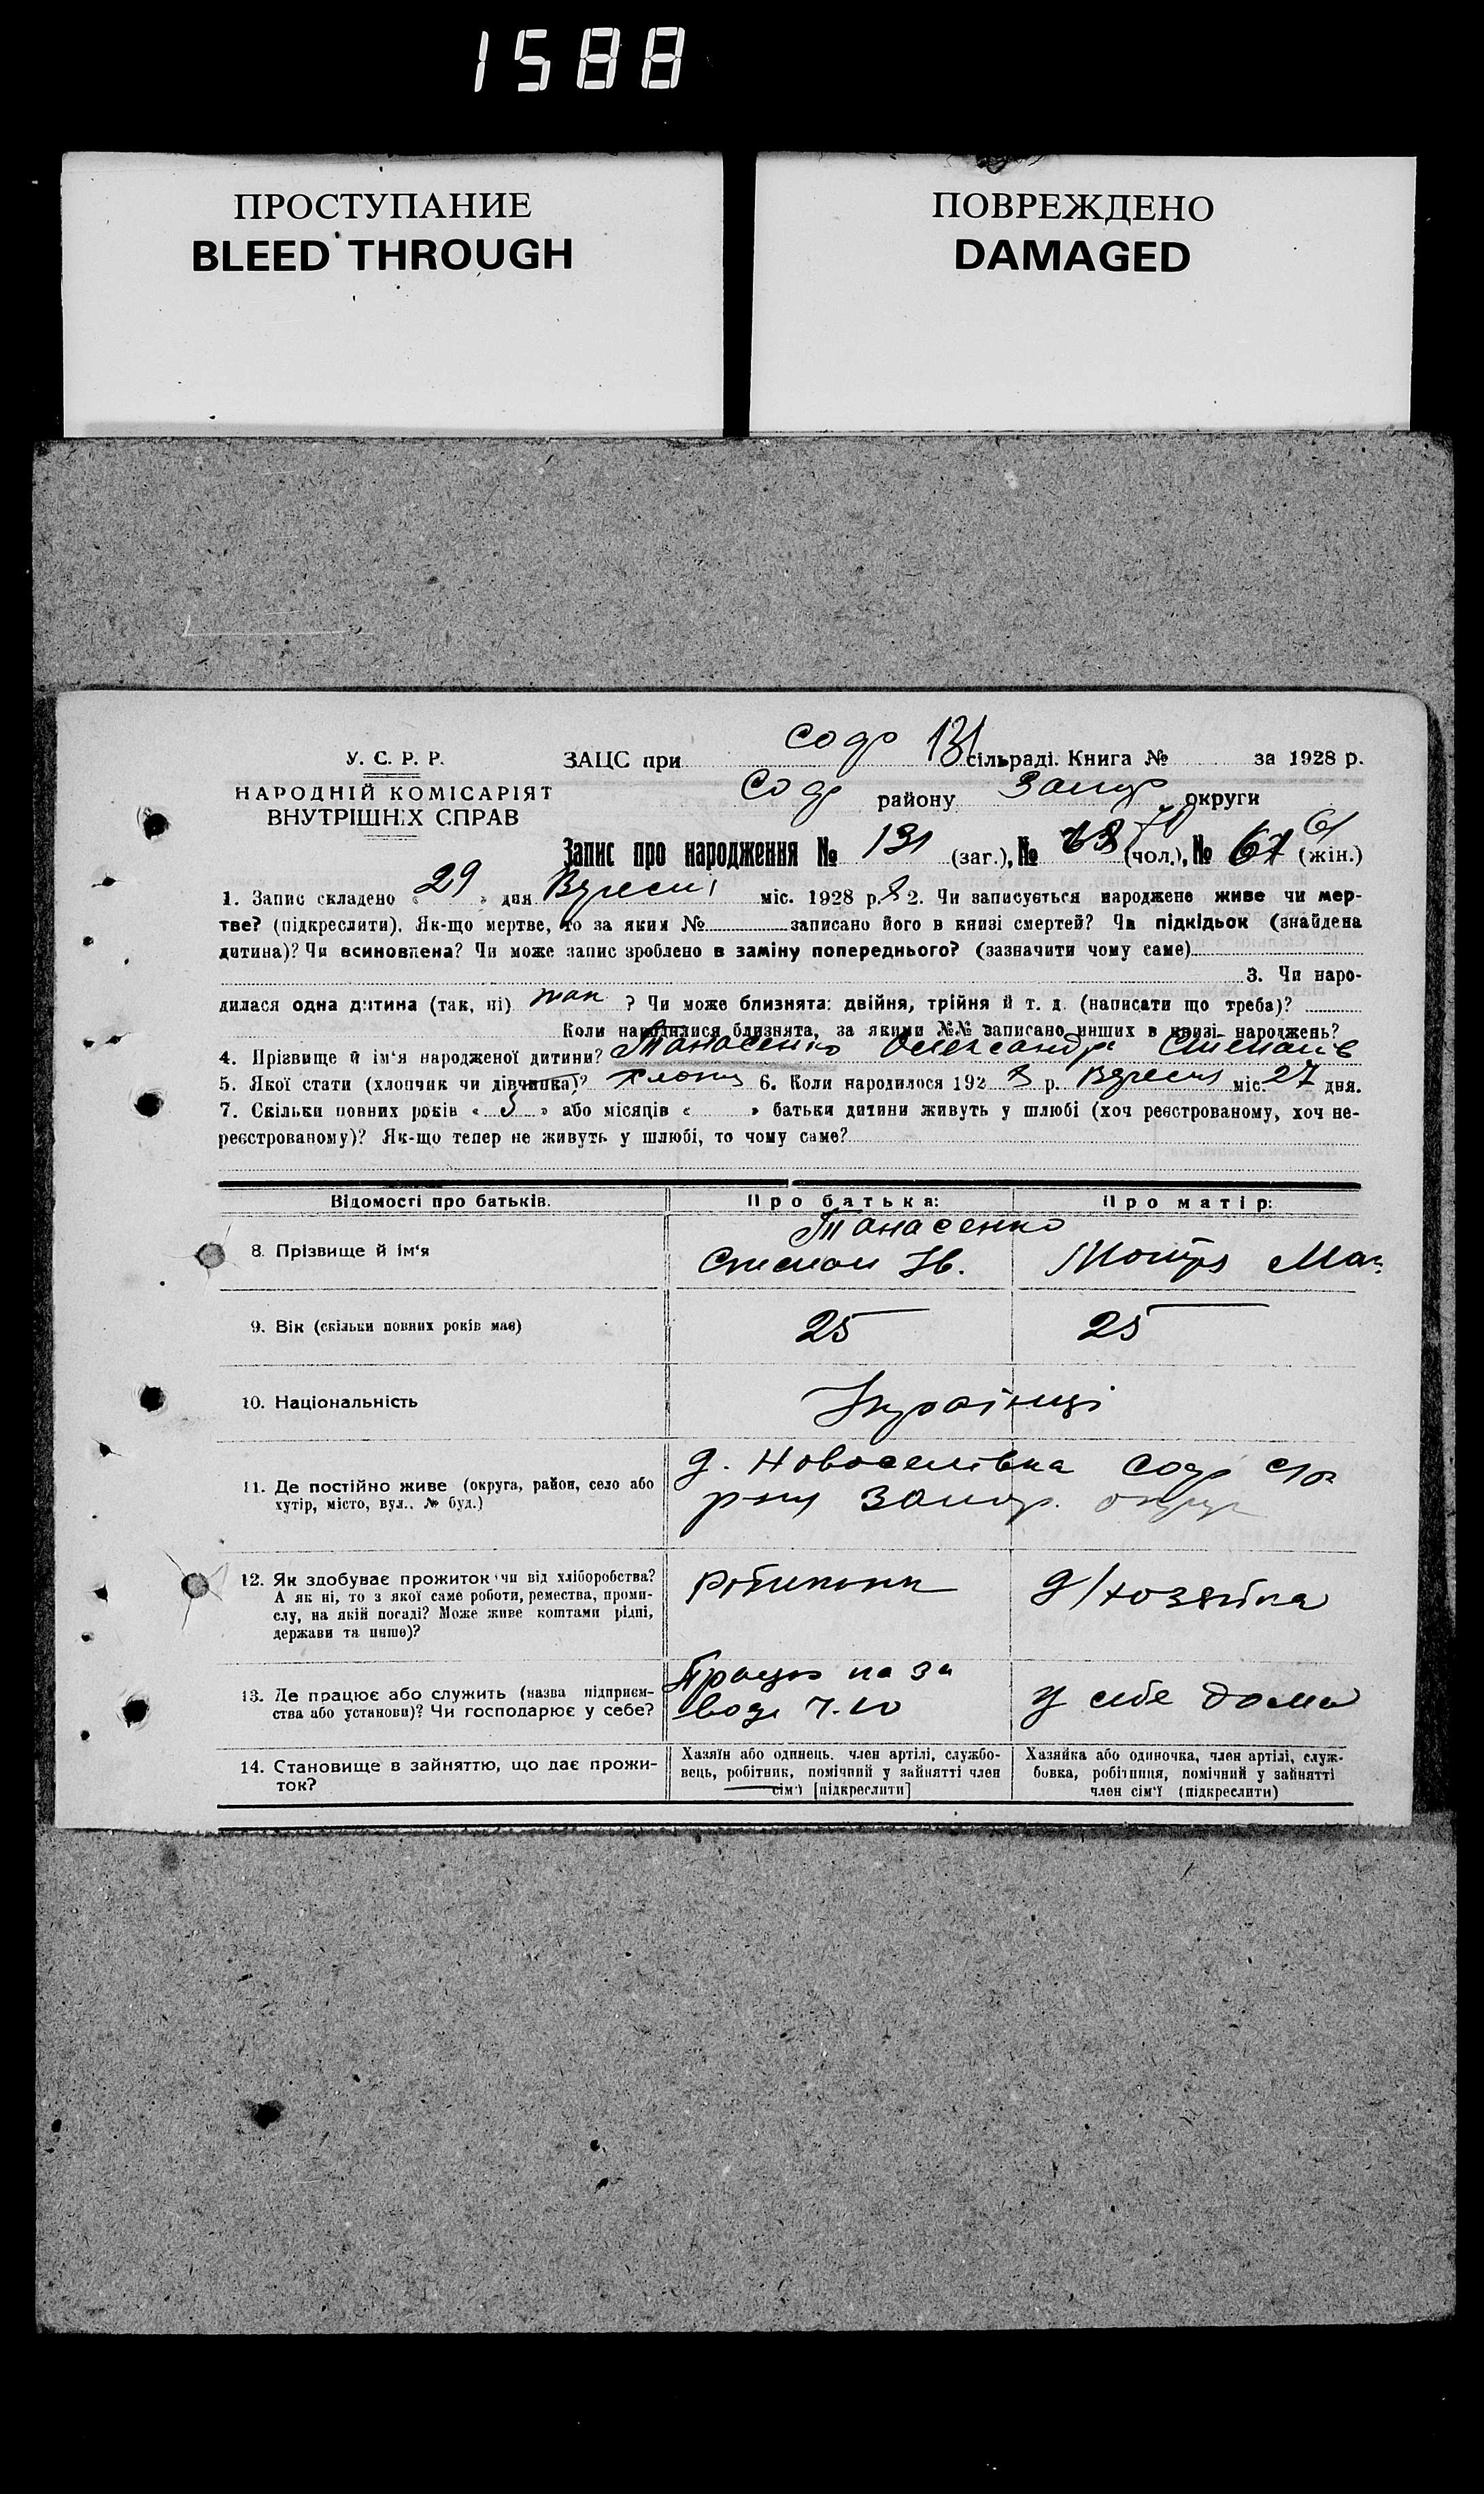 1588
ПРОСТУПАНИЕ
BLEED THROUGH
ПОВРЕЖДЕНО
DAMAGED
У. С. Р. Р.
НАРОДНІЙ КОМІСАРІЯТ
ВНУТРІШНІХ СПРАВ
ЗАЦС при Содо 131 сільраді. Книга № за 1928 р.
Содо району Запор округи
Запис про народження № 131 (заг.), № (чол.), № 67 61 (жін.)
1. Запис складено « 29 » дня Вересні міс. 1928 р. 8 2. Чи записується народжене живе чи мер-
тве? (підкреслити). Як-що мертве, то за яким № записано його в книзі смертей? Чи підкідьок (знайдена
дитина)? Чи всиновлена? Чи може запис зроблено в заміну попереднього? (зазначити чому саме)
3. Чи наро-
дилася одна дитина (так, ні) так ? Чи може близнята: двійня, трійня й т. д. (написати що треба)?
Коли народилися близнята, за якими №№ записано инших в книзі народжень?
4. Прізвище й ім'я народженої дитини? Танасенко Олександр Степанів
5. Якої стати (хлопчик чи дівчинка)? хлопц 6. Коли народилося 192 8 р. Вересня міс. 27 дня.
7. Скільки повних років « 5 » або місяців « » батьки дитини живуть у шлюбі (хоч реєстрованому, хоч не-
реєстрованому)? Як-що тепер не живуть у шлюбі, то чому саме?
Відомості про батьків.
Про батька:
Про матір:
8. Прізвище й ім'я
Танасенко
Степан Ів.
Мотря
9. Вік (скільки повних років має)
25
25
10. Національність
Українці
11. Де постійно живе (округа, район, село або
хутір, місто, вул., № буд.)
д. Новоселівка Содо с/р
р-ну Запор. округи
12. Як здобуває прожиток чи від хліборобства?
А як ні, то з якої саме роботи, ремества, проми-
слу, на якій посаді? Може живе коштами рідні,
держави та инше)?
робітник
д/хозяйка
13. Де працює або служить (назва підприєм-
ства або установи)? Чи господарює у себе?
Працює на за
воді
у себе дома
14. Становище в зайняттю, що дає прожи-
ток?
Хазяїн або одинець, член артілі, службо-
вець, робітник, помічний у зайнятті член
сім'ї [підкреслити]
Хазяйка або одиночка, член артілі, служ-
бовка, робітниця, помічний у зайнятті
член сім'ї (підкреслити)